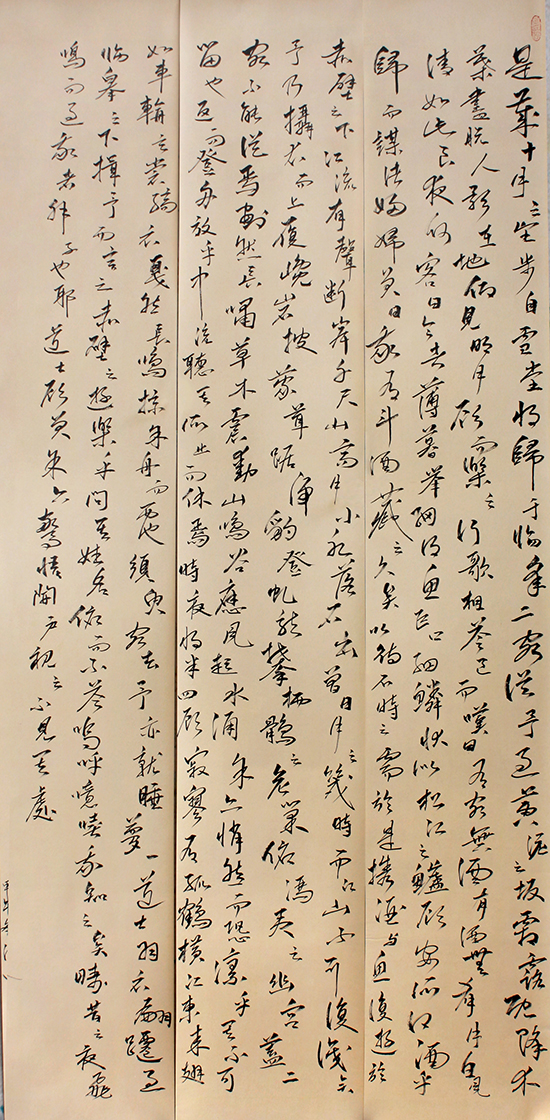 是歲十月之望步自雪堂將歸于臨皋二客從予過黃泥之坂霜露既降木
葉盡脫人影在地仰見明月顧而樂之行歌相答已而嘆曰有客無酒有酒無肴月白風
清如此良夜何客曰今者薄暮舉網得魚巨口細鱗狀似松江之鱸顧安所得酒乎
歸而謀諸婦婦曰我有斗酒藏之久矣以待不時之需於是攜酒與魚復遊於
赤壁之下江流有聲斷岸千尺山高月小水落石出曾日月之幾時而江山不可復識矣
予乃攝衣而上履巉岩披蒙茸踞虎豹登虬龍攀栖鶻之危巢俯馮夷之幽宮蓋二
客不能從焉劃然長嘯草木震動山鳴谷應風起水涌予亦悄然而恐凜乎其不可
留也返而登舟放乎中流聽其所止而休焉時夜將半四顧寂寥有孤鶴橫江東來翅
如車輪玄裳縞衣戛然長鳴掠予舟而西也須臾客去予亦就睡夢一道士羽衣翩躚過
臨皋之下揖予而言之赤壁之遊樂乎問其姓名俯而不答嗚呼噫嘻我知之矣疇昔之夜飛
鳴而過我者非子也耶道士顧笑予亦驚悟開戶視之不見其處